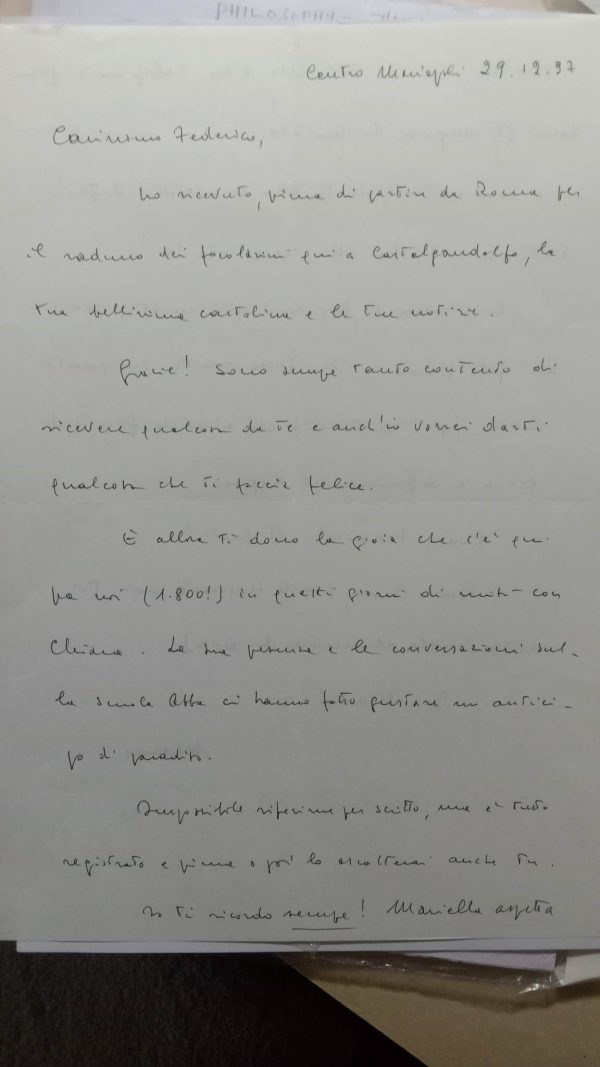 PHILOSOPHY
Centro Mariapoli 29.12.97
Carissimo Federico,
ho ricevuto, prima di partire da Roma per
il raduno dei focolarini qui a Castelgandolfo, la
tua bellissima cartolina e le tue notizie.
Grazie! Sono sempre tanto contento di
ricevere qualcosa da te e anch'io vorrei darti
qualcosa che ti faccia felice.
E allora ti dono la gioia che c'è qui
fra noi (1.800!) in questi giorni di unità con
Chiara. La sua presenza e le conversazioni sul-
la scuola Abba ci hanno fatto gustare un antici-
po di paradiso.
Impossibile riferirne per scritto, ma è tutto
registrato e prima o poi lo ascolterai anche tu.
Io ti ricordo sempre! Mariella aspetta